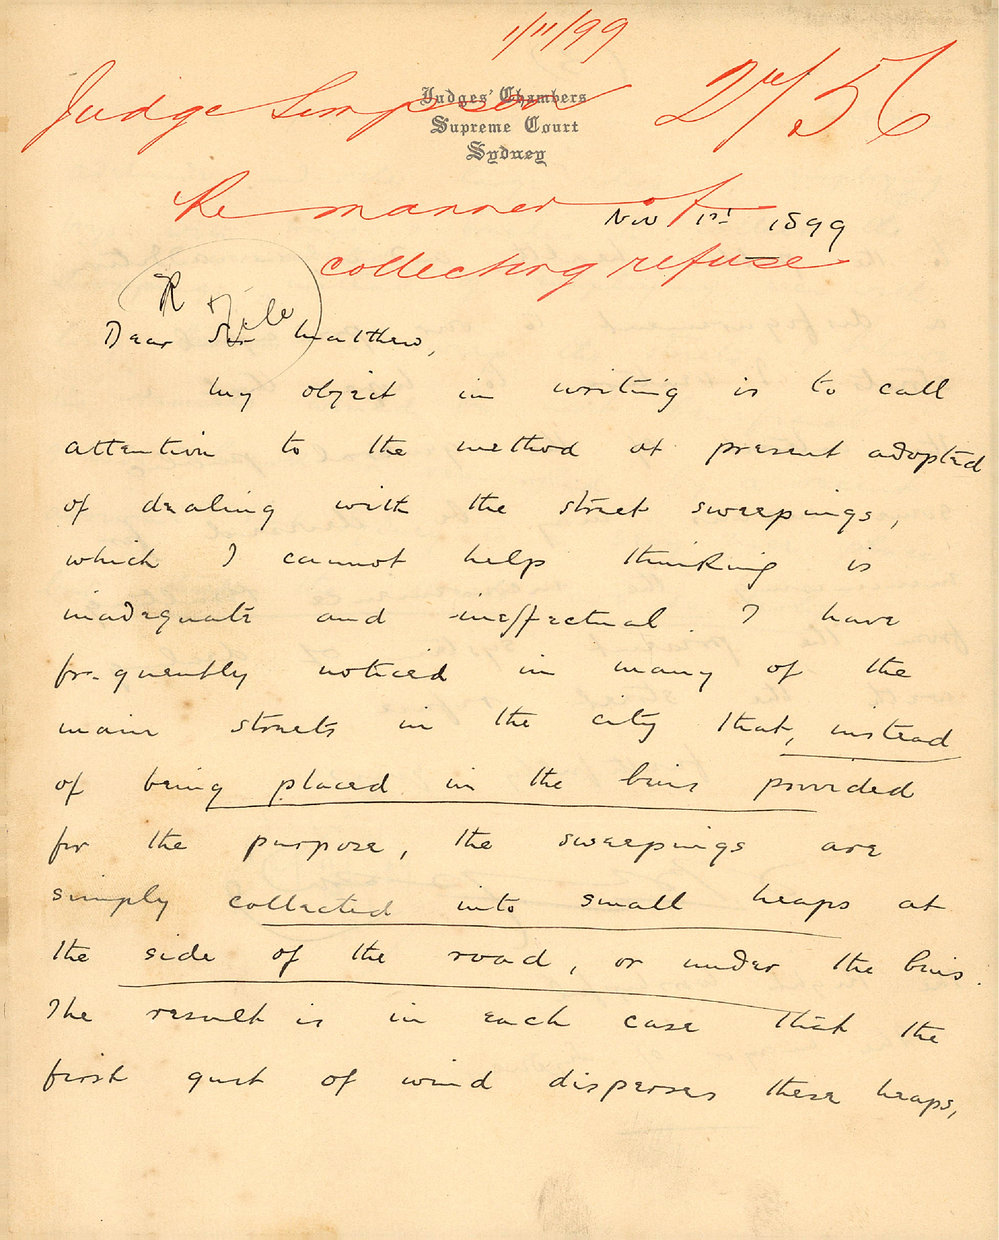 1/11/99
Judge Simpson
Judges' Chambers
Supreme Court
Sydney
Re manner of
Nov 1st 1899
collecting refuse
R File
Dear Sir Matthew,
My object in writing is to call
attention to the method at present adopted
of dealing with the street sweepings,
which I cannot help thinking is
inadequate and ineffectual I have
frequently noticed in many of the
main streets in the city that, instead
of being placed in the bins provided
for the purpose, the sweepings are
simply collected into small heaps at
the side of the road, or under the bins.
The result is in each case that the
first gust of wind disperses these heaps,